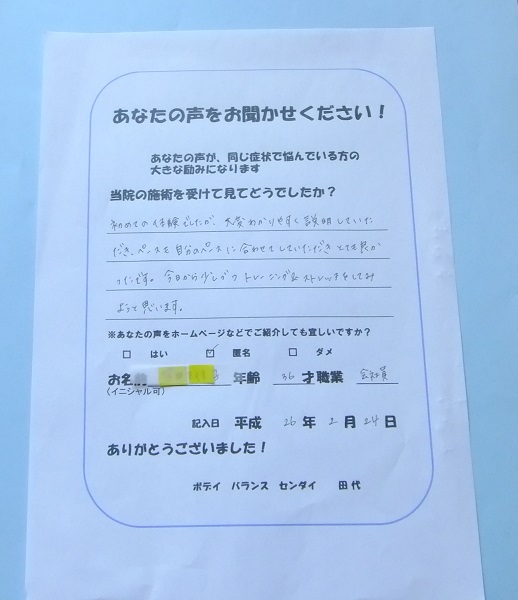 あなたの声をお聞かせください！
あなたの声が、同じ症状で悩んでいる方の
大きな励みになります
当院の施術を受けて見てどうでしたか？
初めての体験でしたが、大変わかりやすく説明していた
だき、ペースも自分のペースに合わせていただきとても良か
ったです。今日から少しずつトレーニング&ストレッチをしてみ
ようと思います。
※あなたの声をホームページなどでご紹介しても宜しいですか？
□ はい ☑ 匿名 □ ダメ
お名 年齢 36 才職業 会社員
（イニシャル可）
記入日 平成 26 年 2 月 24 日
ありがとうございました！
ボデイ バランス センダイ 田代